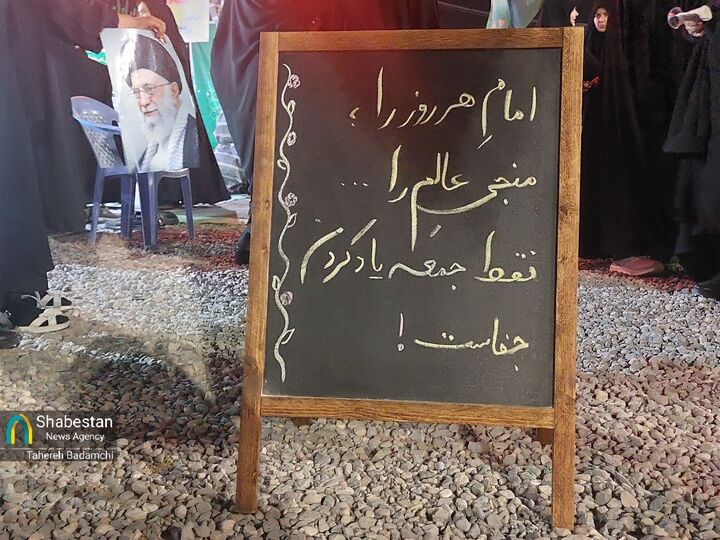 امامِ هر روز را ؛
منجیِ عالَم را ...
فقط جمعه یاد کردن
جفاست !
Shabestan
News Agency
Tahereh Badamchi